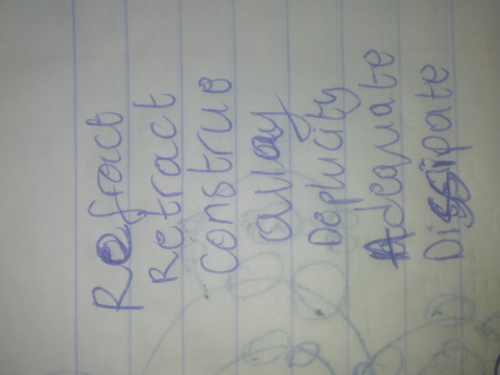 Refract
Retract
construe
allay
Deplicity
Adequate
Dissipate